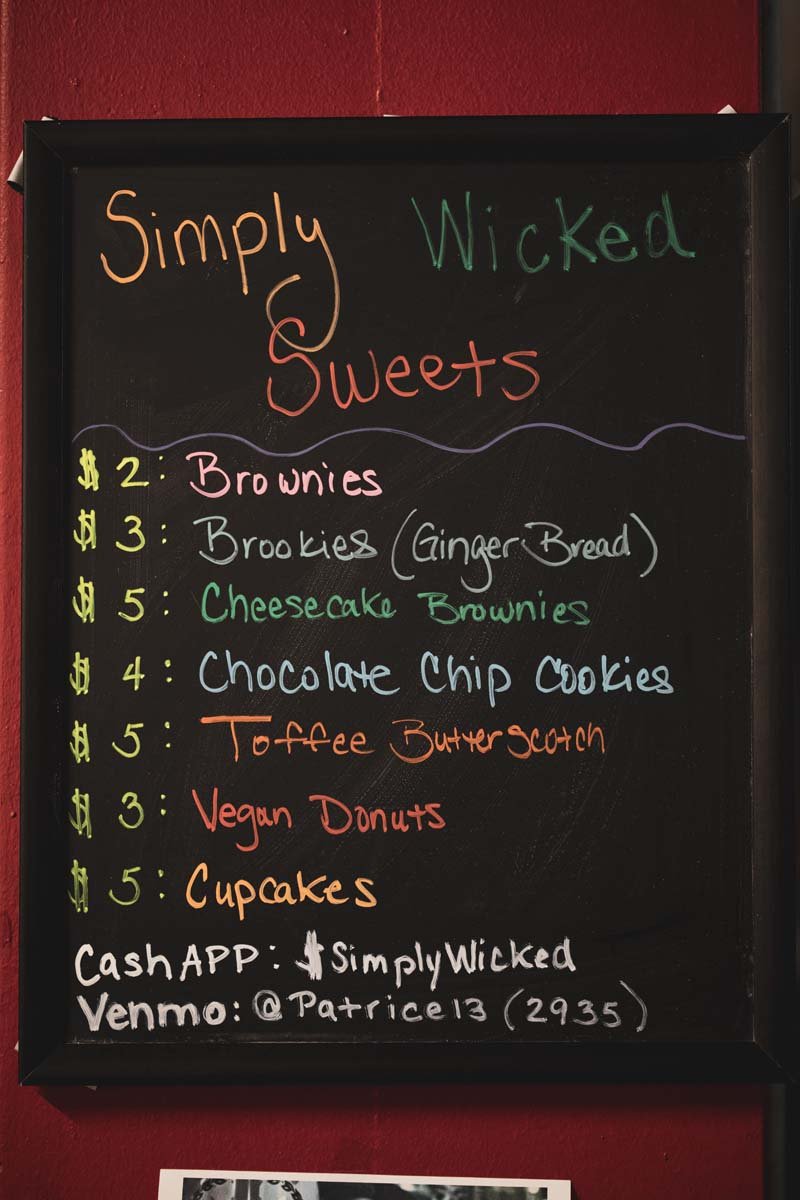 Simply Wicked
Sweets
$ 2: Brownies
$ 3: Brookies (Ginger Bread)
$ 5: Cheesecake Brownies
$ 4: Chocolate Chip Cookies
$ 5: Toffee Butterscotch
$ 3: Vegan Donuts
$ 5: Cupcakes
CashAPP: $SimplyWicked
Venmo: @Patrice13 (2935)